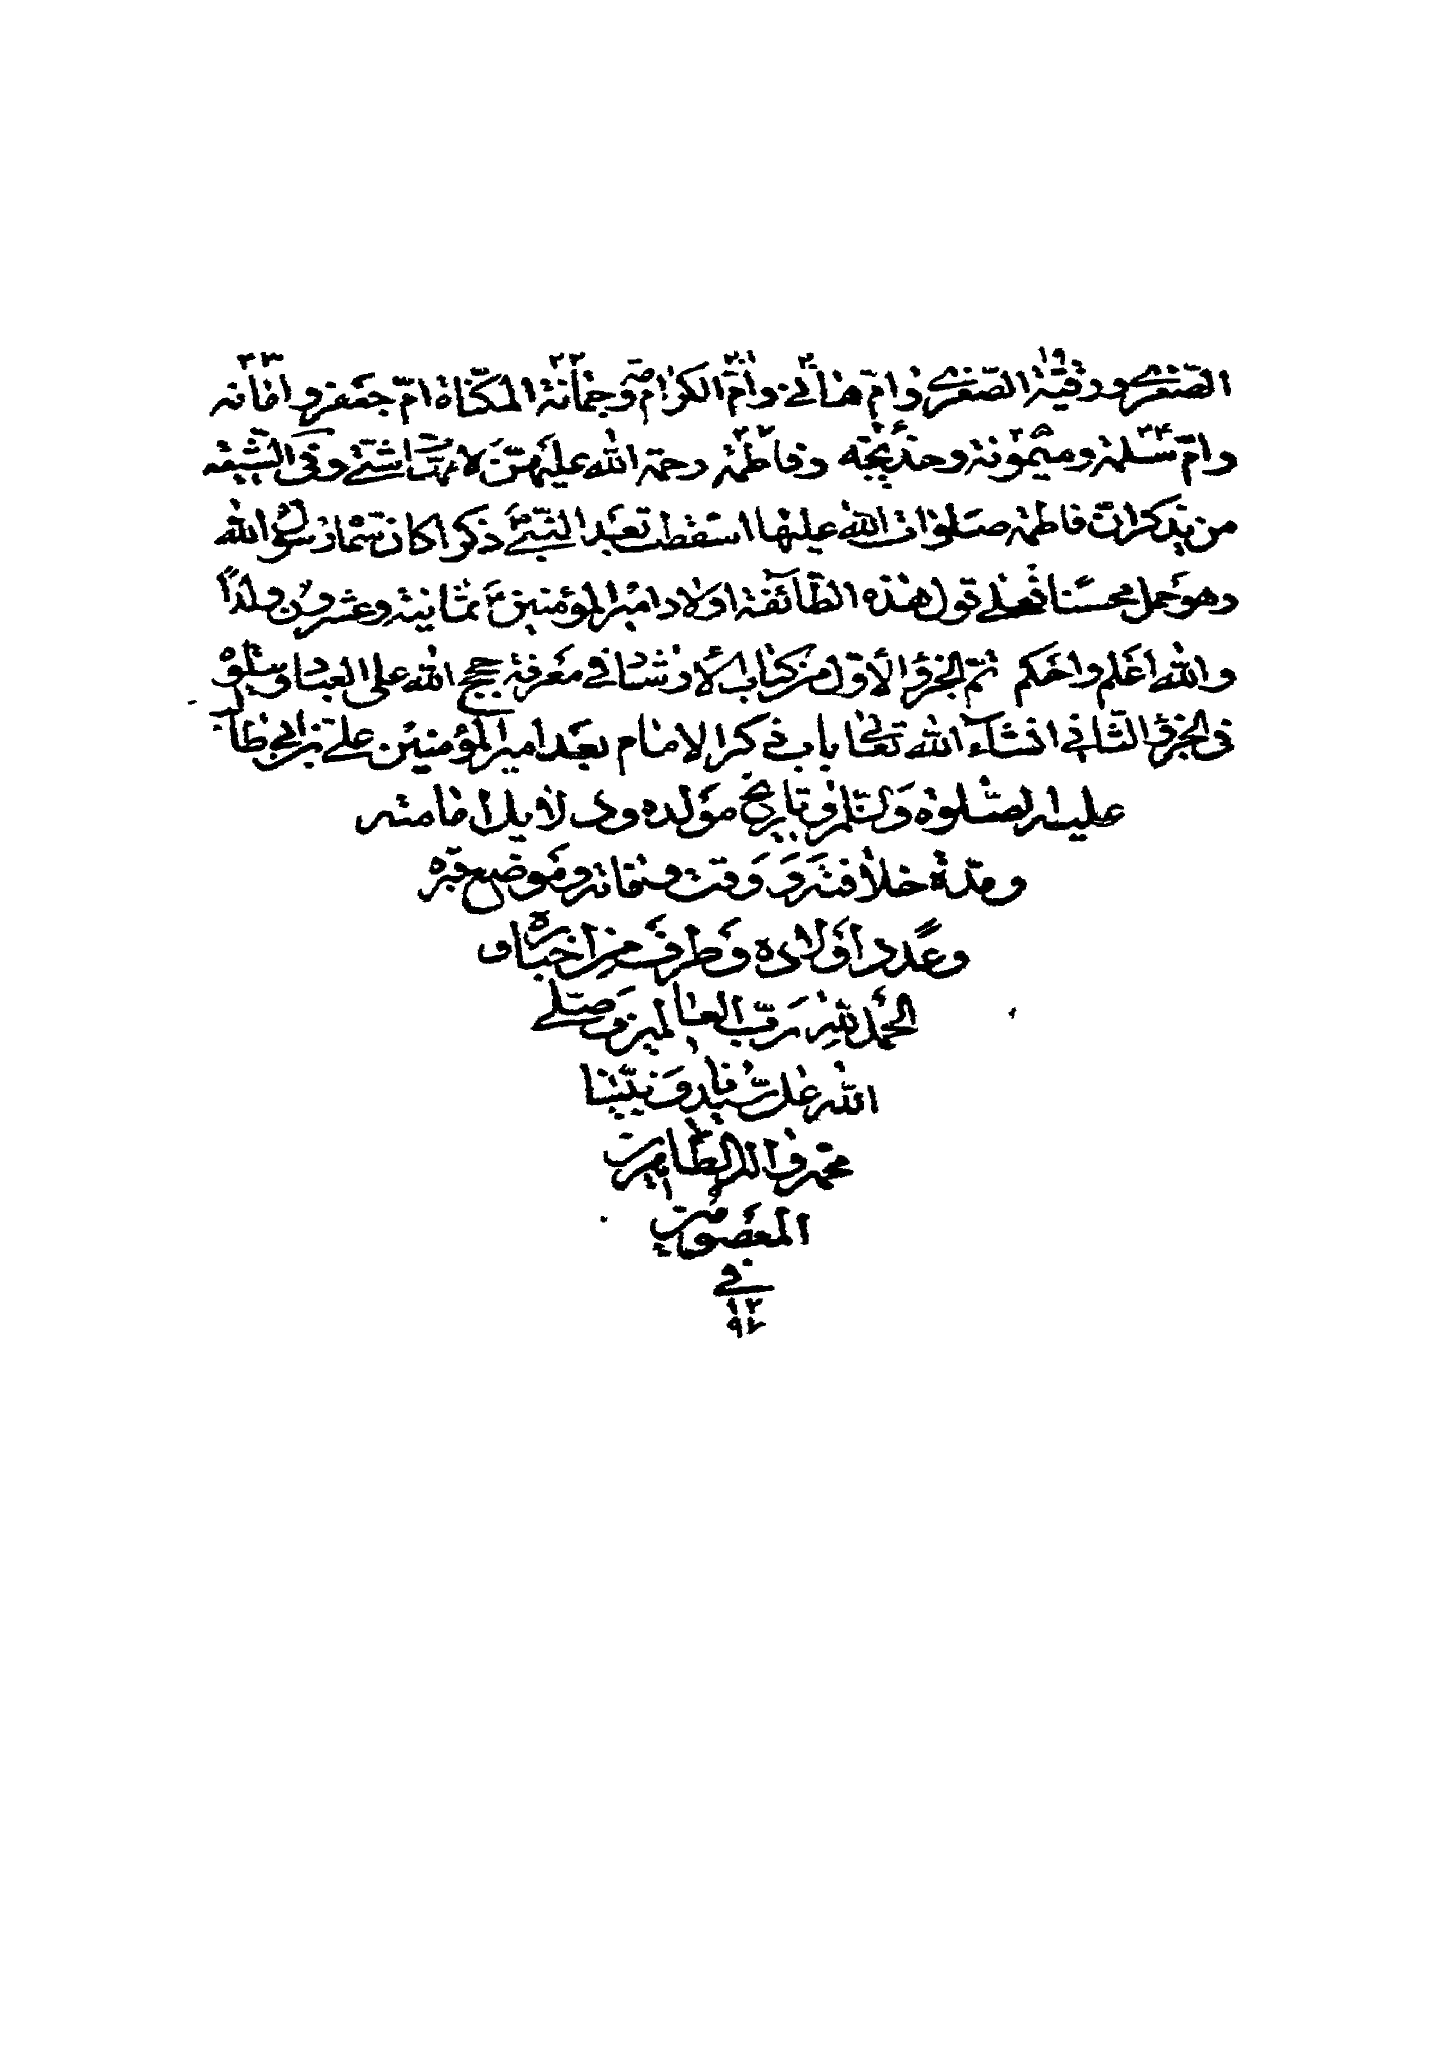 الصغرى ورقية الصغرى وام هانى وام الكرام وجمانة المكناة ام جعفر وامامه
وام سلمة وميمونة وخديجة وفاطمة رحمة الله عليهن لامهات شتى وفى الشيعه
من يذكر ان فاطمة صلوات الله عليها اسقطت بعد النبى ذكرا كان سماه رسول الله
وهو حمل محسنا فعلى قول هذه الطائفة اولاد امير المؤمنين ثمانية وعشرون ولدا
والله اعلم واحكم تم الجزؤ الاول من كتاب الارشاد فى معرفة حجج الله على العباد ويتلوه
فى الجزؤ الثانى انشاء الله تعالى باب ذكر الامام بعد امير المؤمنين على بن ابى طالب
عليه الصلوة والسلم وتاريخ مولده ودلايل امامته
ومدة خلافته ووقت وفاته وموضع قبره
وعدد اولاده وطرف من اخباره و
الحمد لله رب العالمين وصلى
الله على سيدنا ونبينا
محمد واله الطاهرين
المعصومين
فى
١٢
٩٧